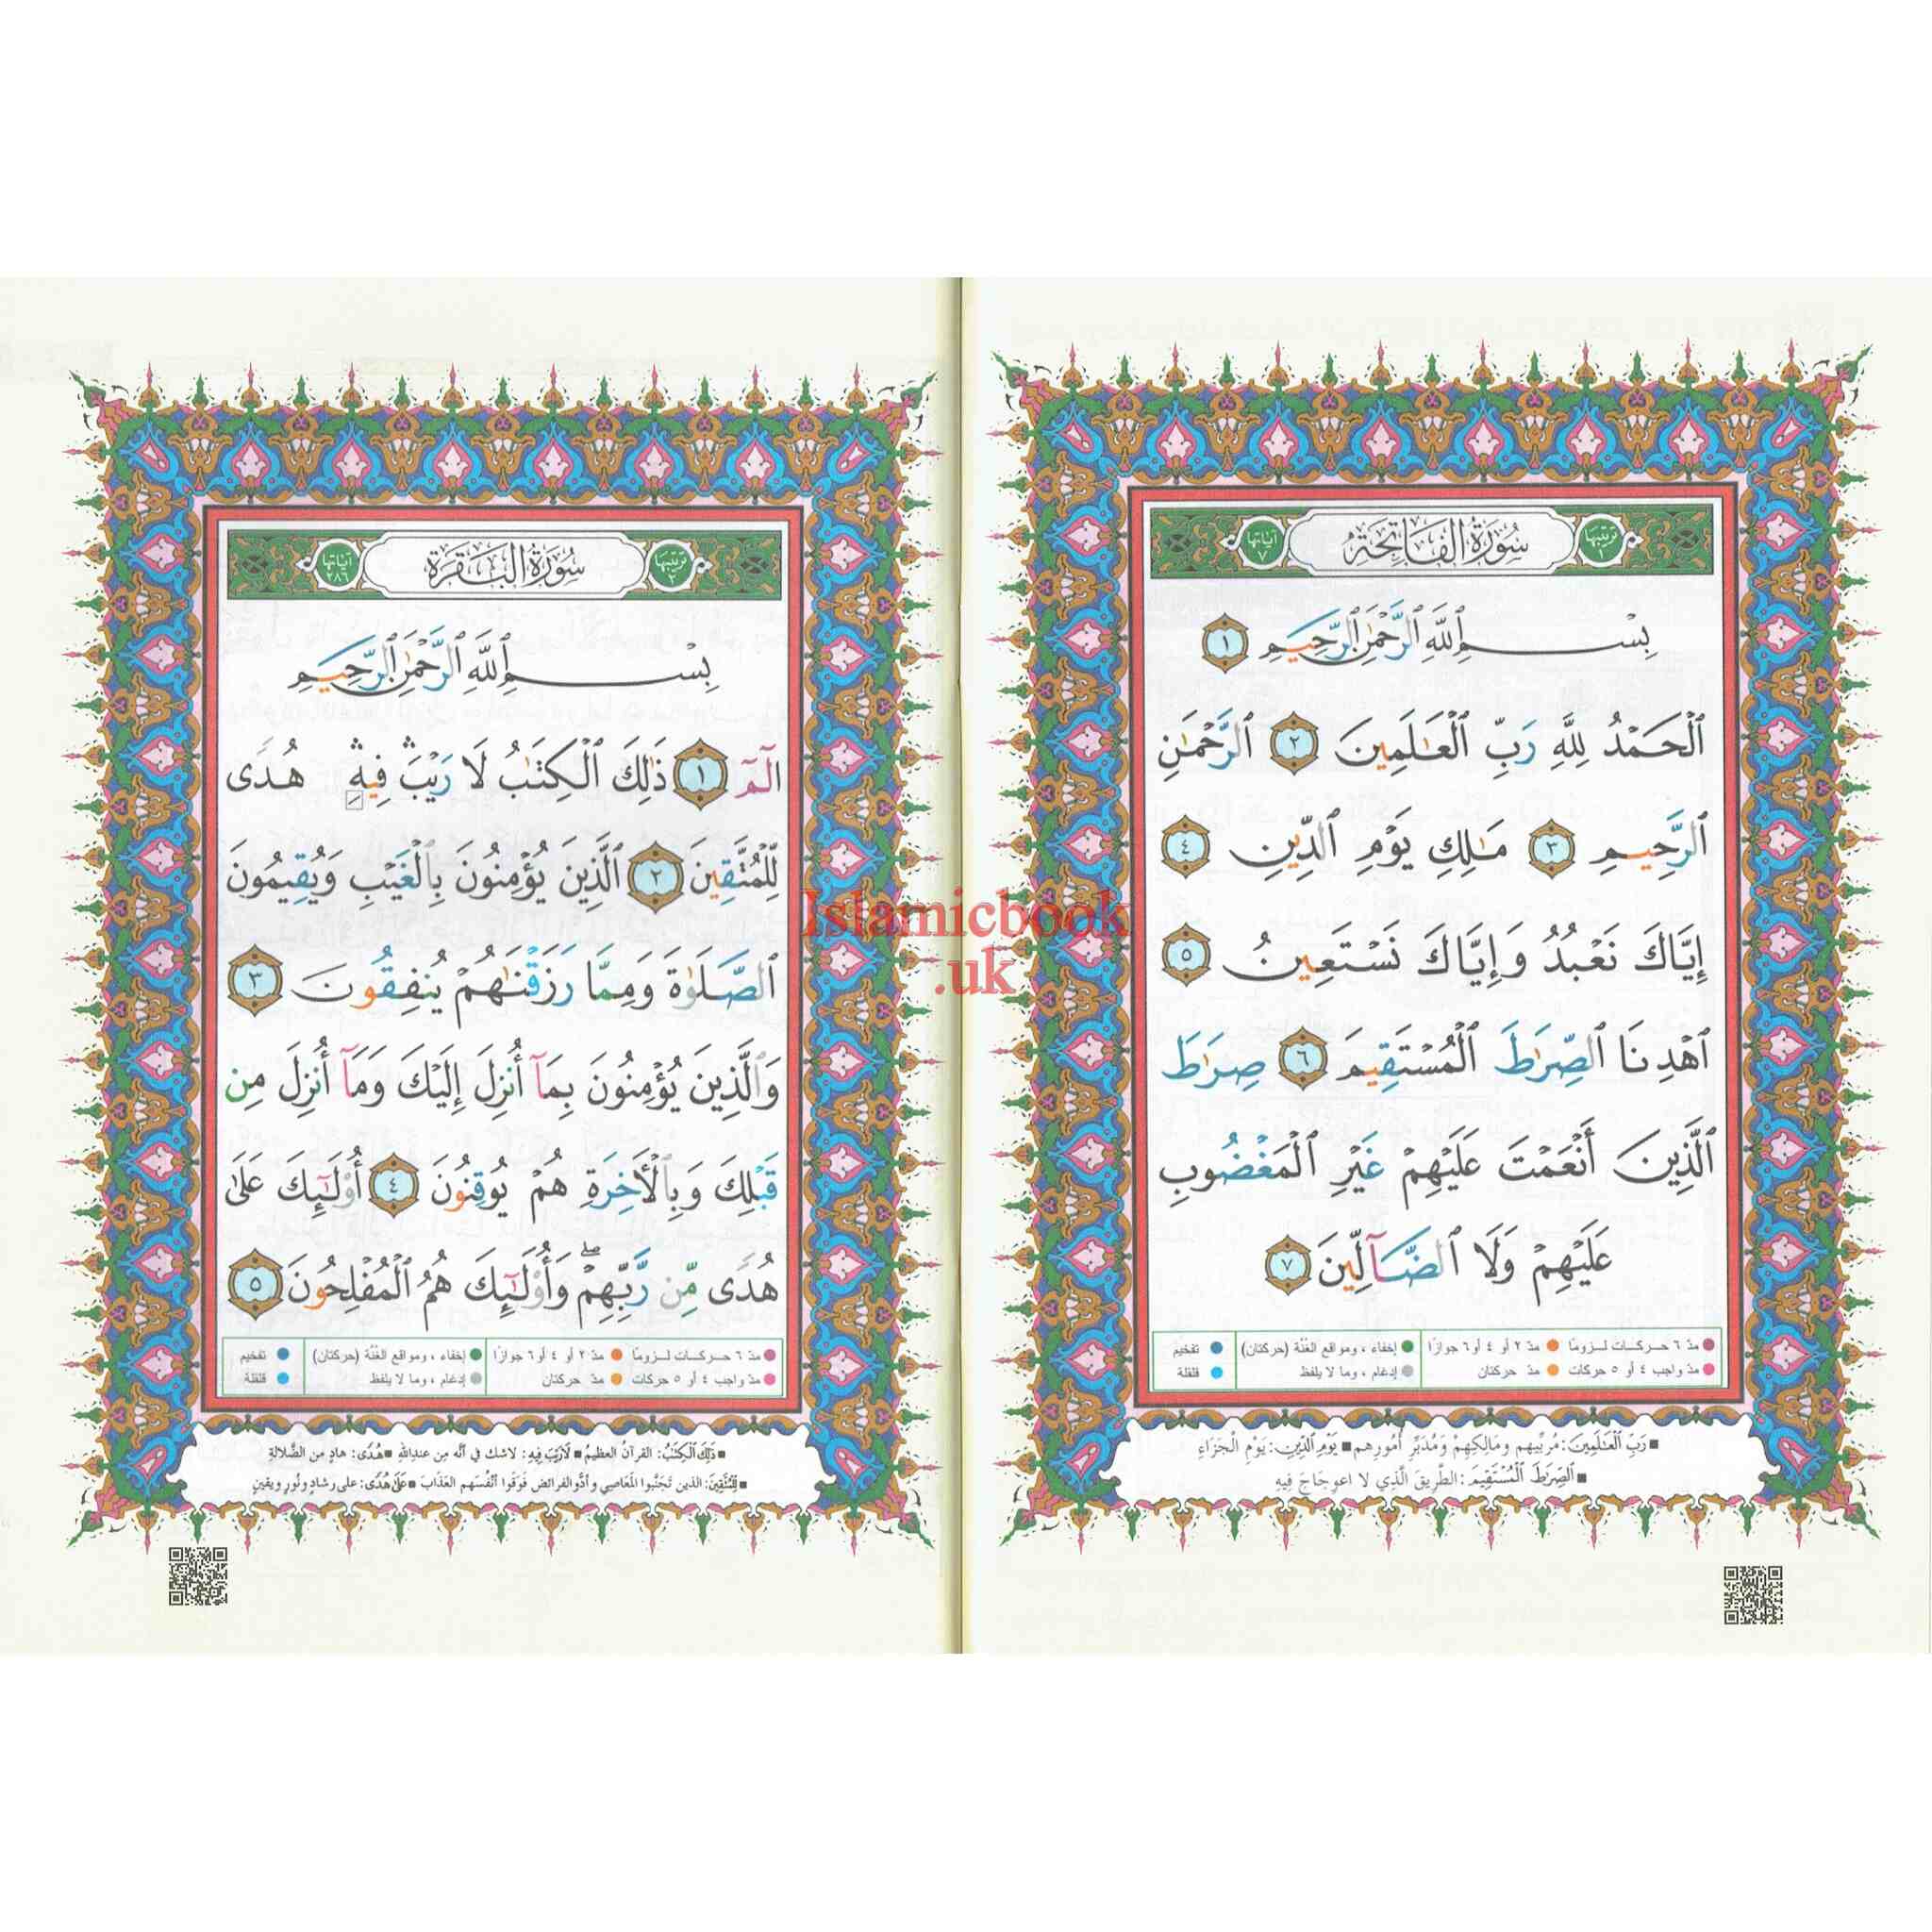 سُورَةُ الفَاتِحَة
ترتيبها ١
آياتها ٧
بِسْمِ ٱللَّهِ ٱلرَّحْمَٰنِ ٱلرَّحِيمِ ١
ٱلْحَمْدُ لِلَّهِ رَبِّ ٱلْعَٰلَمِينَ ٢ ٱلرَّحْمَٰنِ
ٱلرَّحِيمِ ٣ مَٰلِكِ يَوْمِ ٱلدِّينِ ٤
إِيَّاكَ نَعْبُدُ وَإِيَّاكَ نَسْتَعِينُ ٥
ٱهْدِنَا ٱلصِّرَٰطَ ٱلْمُسْتَقِيمَ ٦ صِرَٰطَ
ٱلَّذِينَ أَنْعَمْتَ عَلَيْهِمْ غَيْرِ ٱلْمَغْضُوبِ
عَلَيْهِمْ وَلَا ٱلضَّآلِّينَ ٧
مدّ ٦ حركات لـزومًا مدّ ٢ أو ٤ أو ٦ جوازًا إخفاء ، ومواقع الغنّة (حركتان) تفخيم
مدّ واجب ٤ أو ٥ حركات مدّ حركتان إدغام ، وما لا يلفظ قلقلة
رَبِّ ٱلْعَٰلَمِينَ: مُربِّيهم ومَالِكِهِمْ وَمُدَبِّرِ أُمُورِهم يَوْمِ ٱلدِّينِ: يَوْمِ الْجَزَاءِ
ٱلصِّرَٰطَ ٱلْمُسْتَقِيمَ: الطَّرِيقَ الَّذِي لا اعوِجَاجَ فِيهِ
سُورَةُ البَقَرَة
ترتيبها ٢
آياتها ٢٨٦
بِسْمِ ٱللَّهِ ٱلرَّحْمَٰنِ ٱلرَّحِيمِ
الٓمٓ ١ ذَٰلِكَ ٱلْكِتَٰبُ لَا رَيْبَۛ فِيهِۛ هُدًى
لِّلْمُتَّقِينَ ٢ ٱلَّذِينَ يُؤْمِنُونَ بِٱلْغَيْبِ وَيُقِيمُونَ
ٱلصَّلَوٰةَ وَمِمَّا رَزَقْنَٰهُمْ يُنفِقُونَ ٣
وَٱلَّذِينَ يُؤْمِنُونَ بِمَآ أُنزِلَ إِلَيْكَ وَمَآ أُنزِلَ مِن
قَبْلِكَ وَبِٱلْأَخِرَةِ هُمْ يُوقِنُونَ ٤ أُو۟لَٰٓئِكَ عَلَىٰ
هُدًى مِّن رَّبِّهِمْۖ وَأُو۟لَٰٓئِكَ هُمُ ٱلْمُفْلِحُونَ ٥
مدّ ٦ حركات لـزومًا مدّ ٢ أو ٤ أو ٦ جوازًا إخفاء ، ومواقع الغنّة (حركتان) تفخيم
مدّ واجب ٤ أو ٥ حركات مدّ حركتان إدغام ، وما لا يلفظ قلقلة
ذَٰلِكَ ٱلْكِتَٰبُ: القرآنُ العظيمُ لَا رَيْبَ فِيهِ: لا شك في أنَّه مِن عندِ اللهِ هُدًى: هادٍ من الضَّلالةِ
لِّلْمُتَّقِينَ: الذين تَجَنَّبوا المَعاصِي وأدَّو الفرائضَ فوَقَوا أنْفُسَهم العَذَابَ عَلَىٰ هُدًى: على رشادٍ ونُورٍ ويقينٍ
Islamicbook
.uk